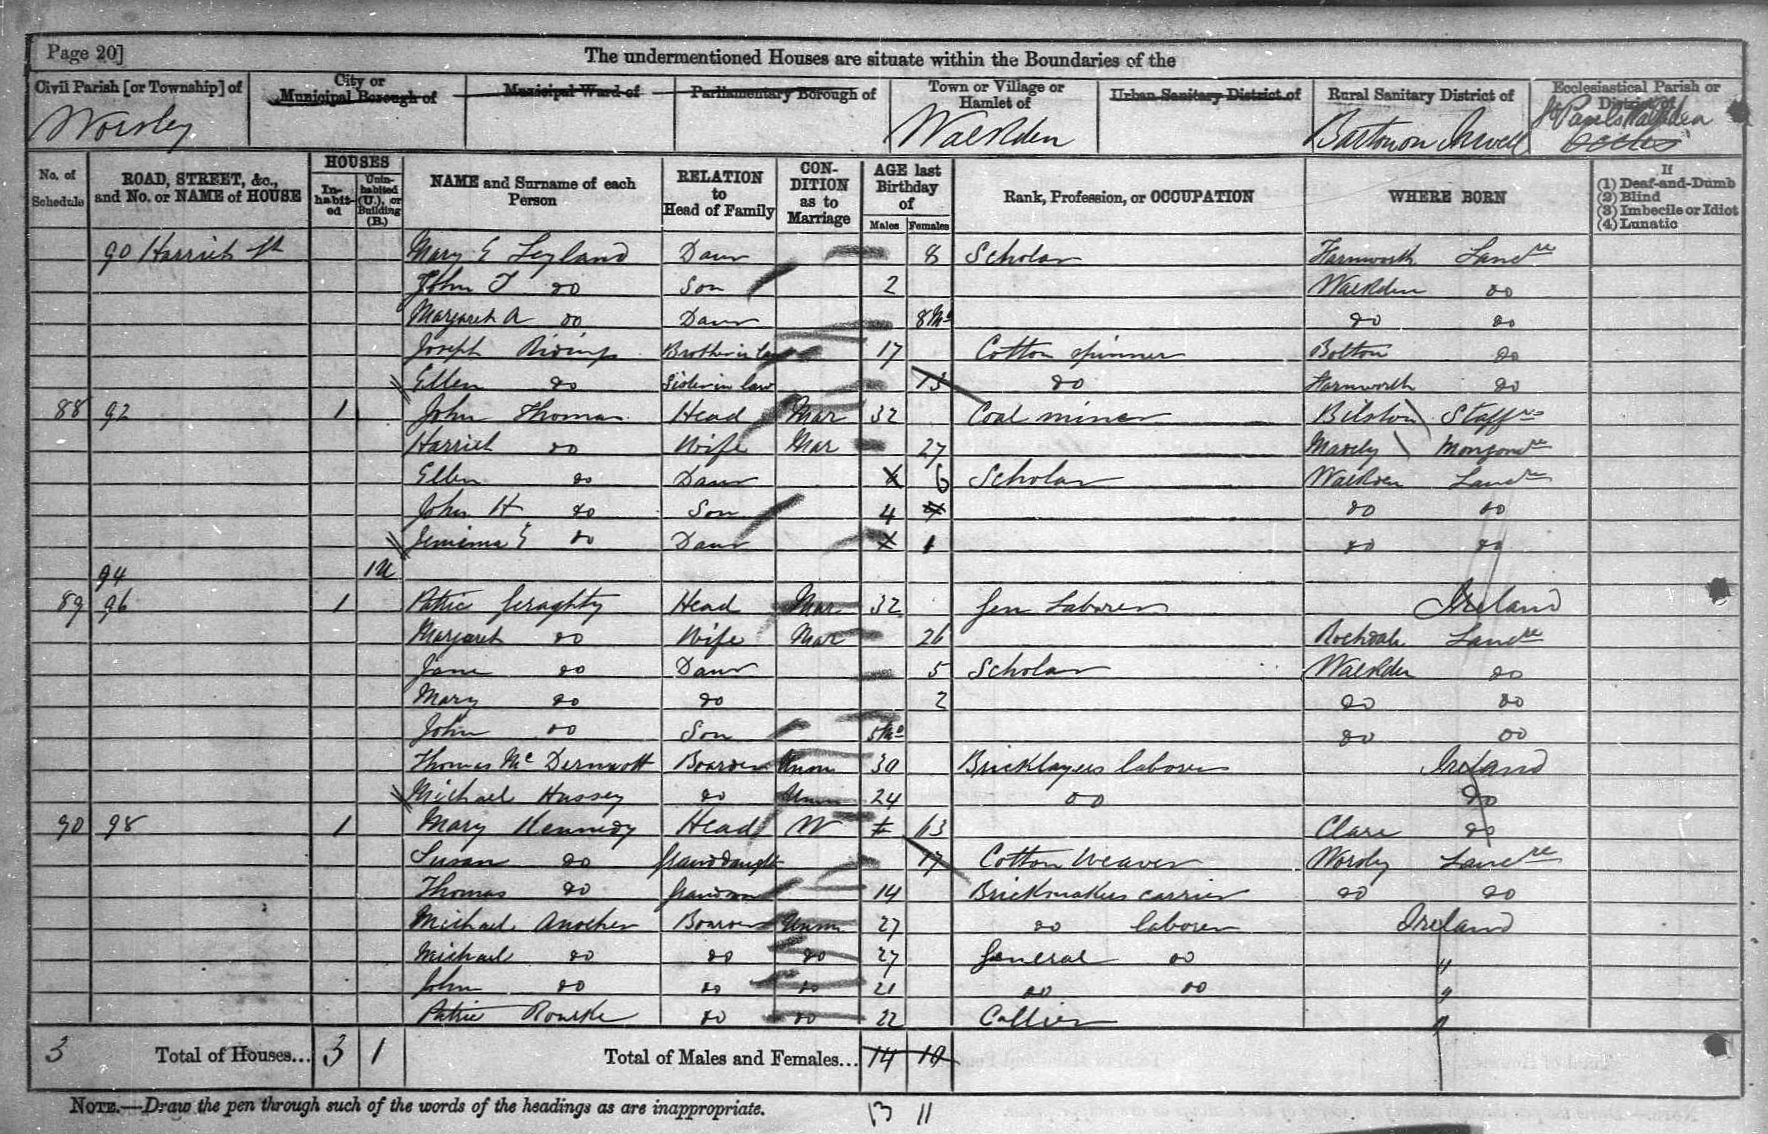 Page 20]
The undermentioned Houses are situate within the Boundaries of the
Civil Parish [or Township] of City or Municipal Borough of Municipal Ward of Parliamentary Borough of Town or Village or Hamlet of Urban Sanitary District of Rural Sanitary District of Ecclesiastical Parish or District of
Worsley Walkden Barton on Irwell St Pauls Walkden Eccles
No. of Schedule ROAD, STREET, &c., and No. or NAME of HOUSE HOUSES In-habit-ed Unin-habited (U.), or Building (B.) NAME and Surname of each Person RELATION to Head of Family CON-DITION as to Marriage AGE last Birthday of Males Females Rank, Profession, or OCCUPATION WHERE BORN If (1) Deaf-and-Dumb (2) Blind (3) Imbecile or Idiot (4) Lunatic
90 Harriet St Mary E Leyland Daur 8 Scholar Farnworth Lancre
John T do Son 2 Walkden do
Margaret A do Daur 8 Mo do do
Joseph Brother in law 17 Cotton spinner Bolton do
Ellen do Sister in law 15 do Farnworth do
88 92 1 John Thomas Head Mar 32 Coal miner Bilston Staffs
Harriet do Wife Mar 27
Ellen do Daur 6 Scholar Walkden Lancre
John H do Son 4 do do
Jemima E do Daur 1 do do
94 1 U
89 96 1 Patric Geraghty Head Mar 32 Gen Laborer Ireland
Margaret do Wife Mar 26 Rochdale Lancre
Jane do Daur 5 Scholar Walkden do
Mary do do 2 do do
John do Son 5 Mo do do
Thomas Mc Dermott Boarder Unm 30 Bricklayers laborer Ireland
Michael Hussey do Unm 24 do do
90 98 1 Mary Kennedy Head W 63 Clare do
Susan do Granddaughr 17 Cotton Weaver Worsley Lancre
Thomas do Grandson 14 Brickmakers carrier do do
Michael Boarder Unm 27 do laborer Ireland
Michael do do do 27 General do "
John do do do 21 do do "
Patric Rourke do do 22 Collier "
3 Total of Houses... 3 1 Total of Males and Females... 14 10
NOTE.—Draw the pen through such of the words of the headings as are inappropriate.
13 11